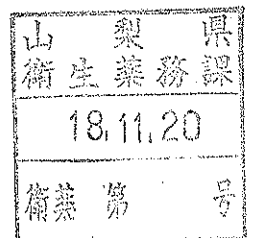 山梨県
衛生薬務課
18.11.20
衛薬第 号